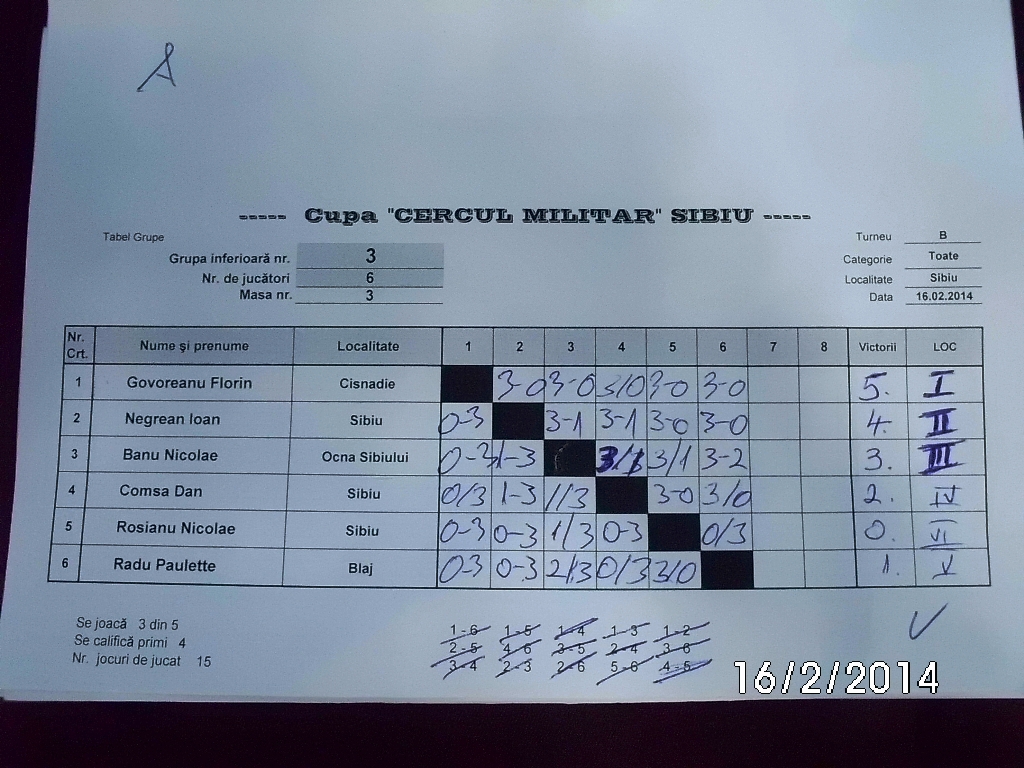 A
----- Cupa "CERCUL MILITAR" SIBIU -----
Tabel Grupe
Grupa inferioară nr. 3
Nr. de jucători 6
Masa nr. 3
Turneu B
Categorie Toate
Localitate Sibiu
Data 16.02.2014
Nr. Crt. Nume şi prenume Localitate 1 2 3 4 5 6 7 8 Victorii LOC
1 Govoreanu Florin Cisnadie 3-0 3-0 3/0 3-0 3-0 5. I
2 Negrean Ioan Sibiu 0-3 3-1 3-1 3-0 3-0 4. II
3 Banu Nicolae Ocna Sibiului 0-3 1-3 3/1 3/1 3-2 3. III
4 Comsa Dan Sibiu 0/3 1-3 1/3 3-0 3/0 2. IV
5 Rosianu Nicolae Sibiu 0-3 0-3 1/3 0-3 0/3 0. VI
6 Radu Paulette Blaj 0-3 0-3 2/3 0/3 3/0 1. V
Se joacă 3 din 5
Se califică primi 4
Nr. jocuri de jucat 15
1 - 6 1 - 5 1 - 4 1 - 3 1 - 2
2 - 5 4 - 6 3 - 5 2 - 4 3 - 6
3 - 4 2 - 3 2 - 6 5 - 6 4 - 5
16/2/2014